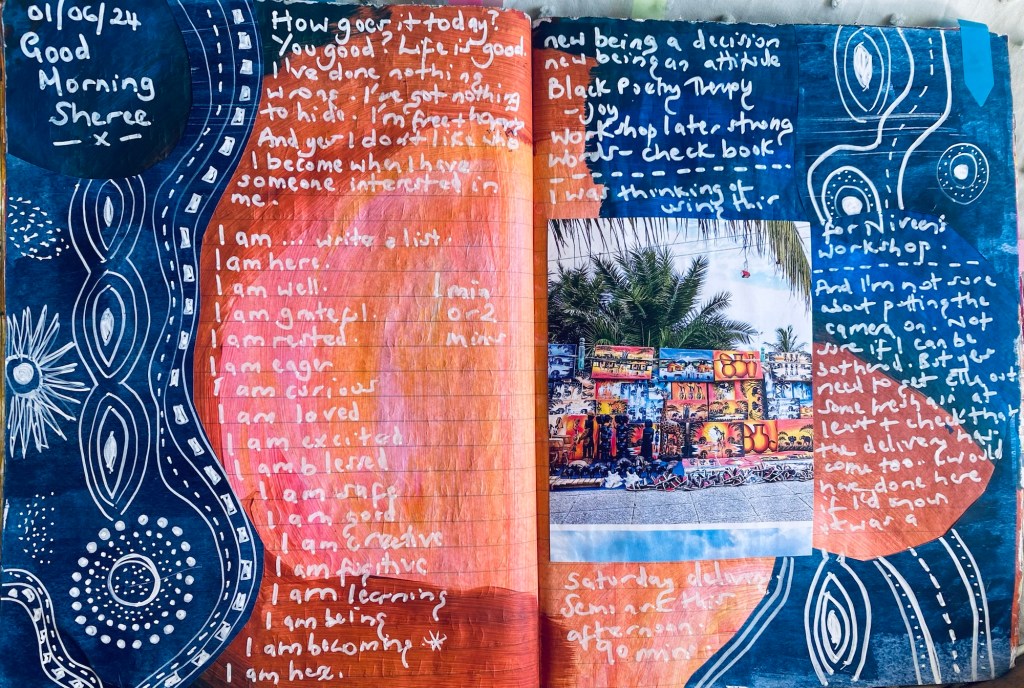 01/06/24
Good
Morning
Sheree
- x -
How goes it today?
You good? Life is good.
I've done nothing
wrong. I've got nothing
to hide. I'm free + happy
And yes I don't like who
I become when I have
someone interested in
me.
I am ... write a list.
I am here.
I am well.
I am grateful.
I am rested.
I am eager
I am curious
I am loved
I am excited
I am blessed
I am safe
I am good
I am creative
I am fugitive
I am learning
I am being
I am becoming *
I am hex.
1 min
or 2
mins
new being a decision
new being an attitude
Black Poetry Therapy
- Joy
workshop later strong
words - check book
I was thinking of
using this
for Niveen's
workshop.
And I'm not sure
about putting the
camera on. Not
sure if I can be
bothered. But yes
need to get Elly out
some fresh air at
least + check that
the delivery has
come too.. I would
have done here
if I'd known
it was a
Saturday delivery.
Seminar this
afternoon.
90 mins.